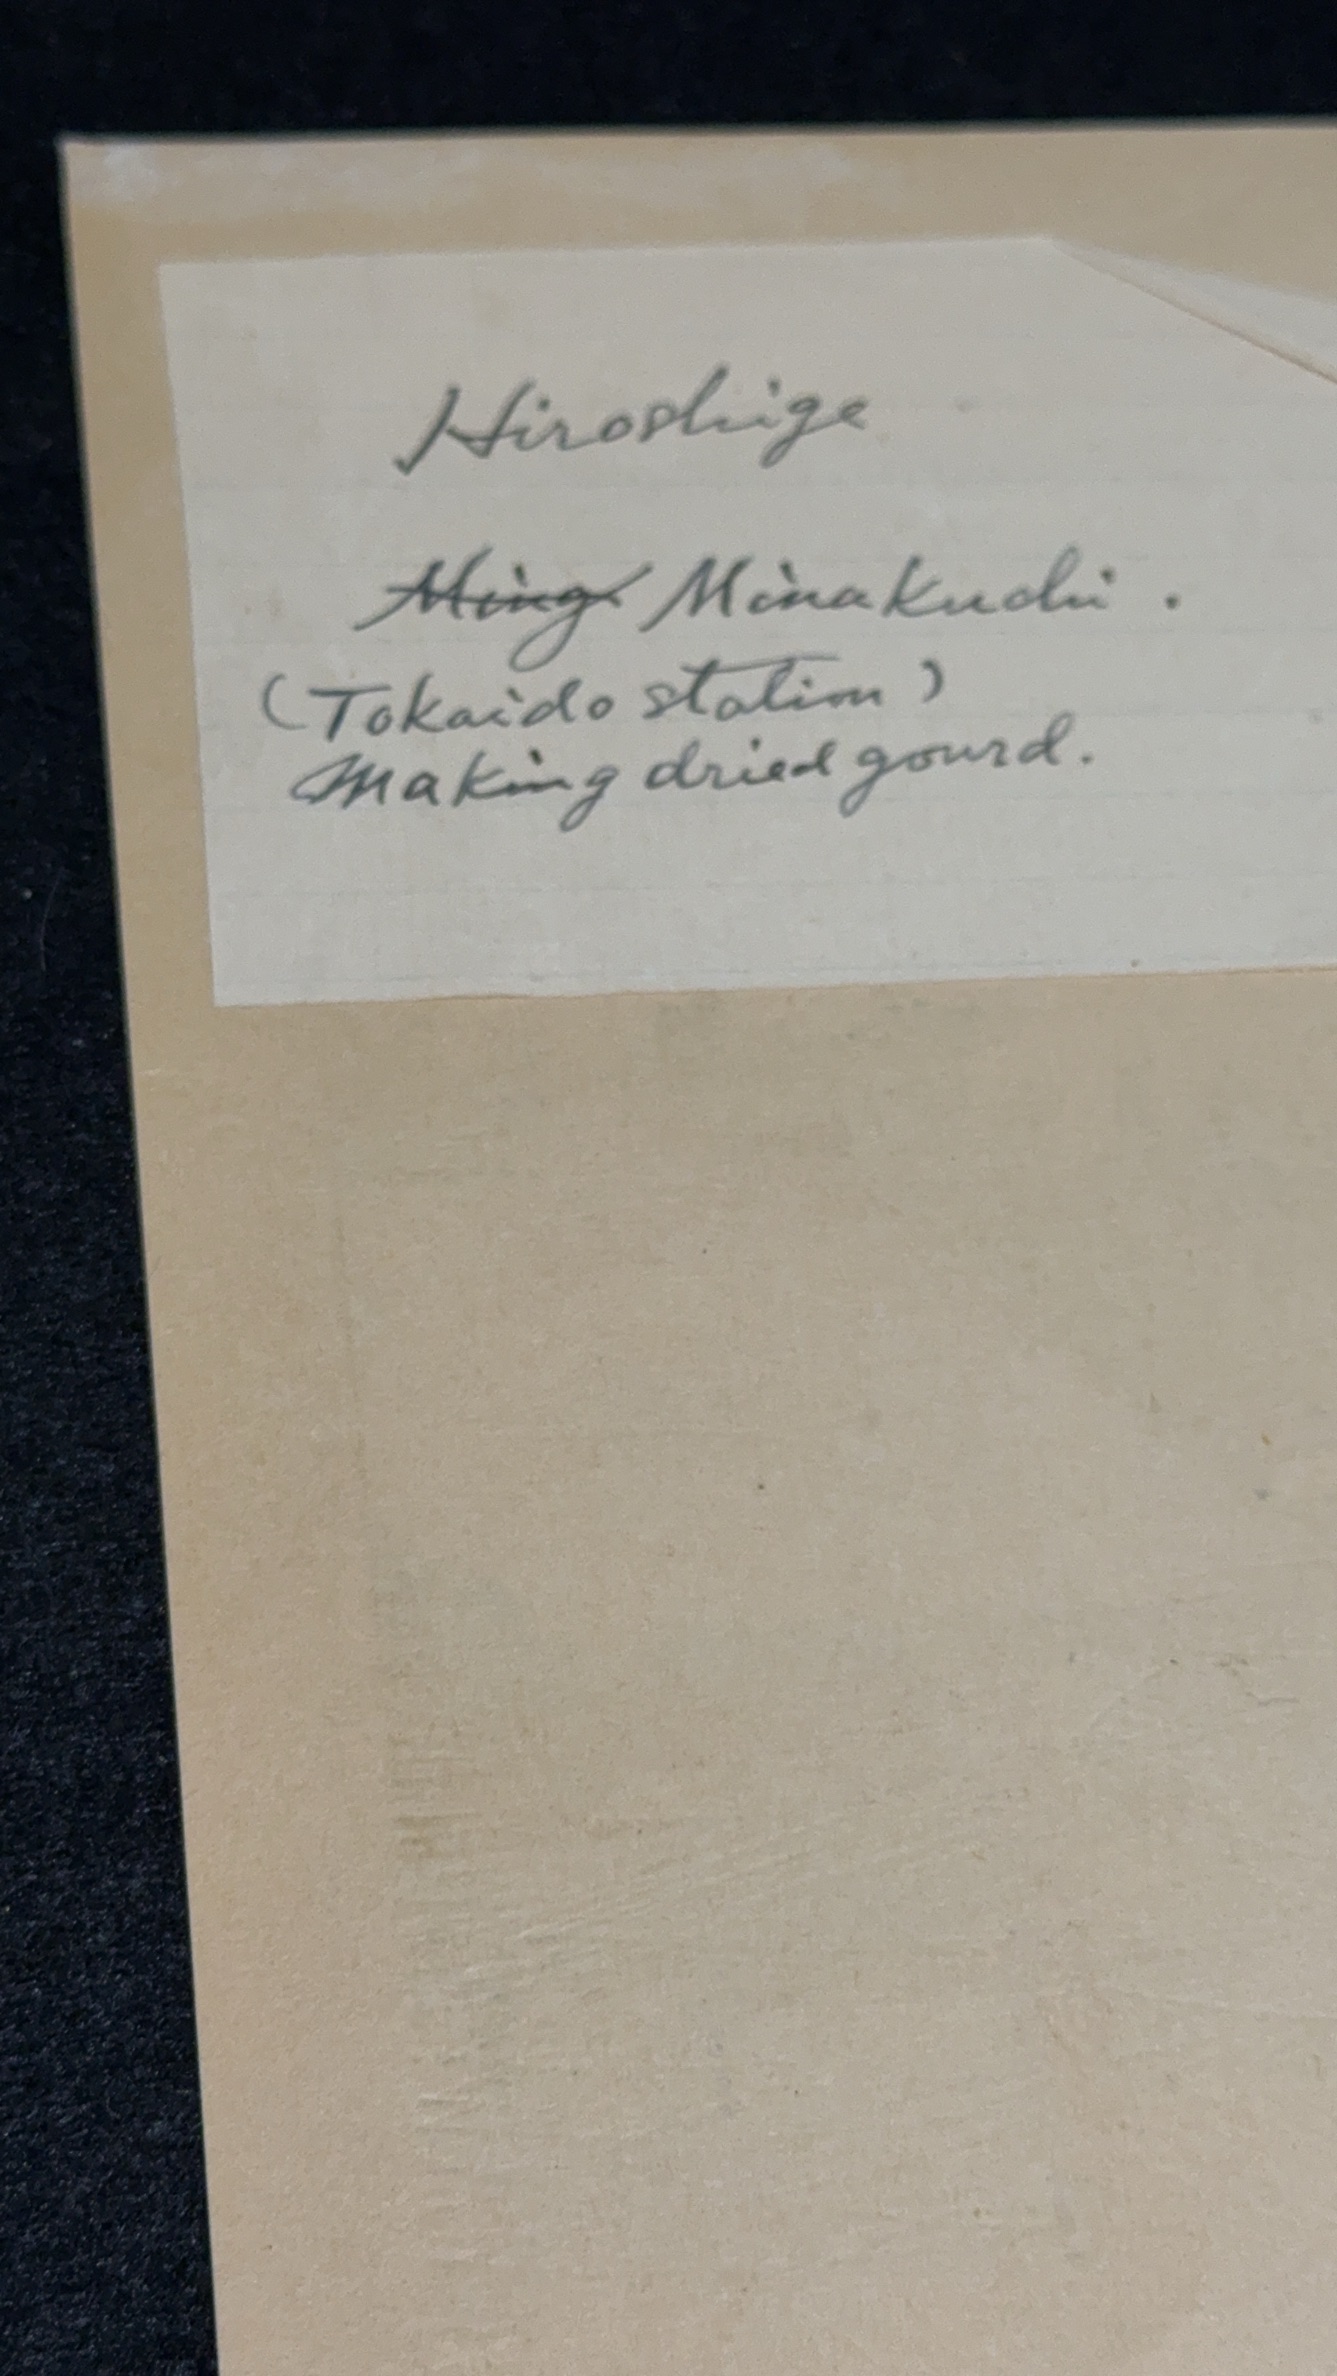 Hiroshige
Ming Minakuchi.
(Tokaido station)
Making dried gourd.